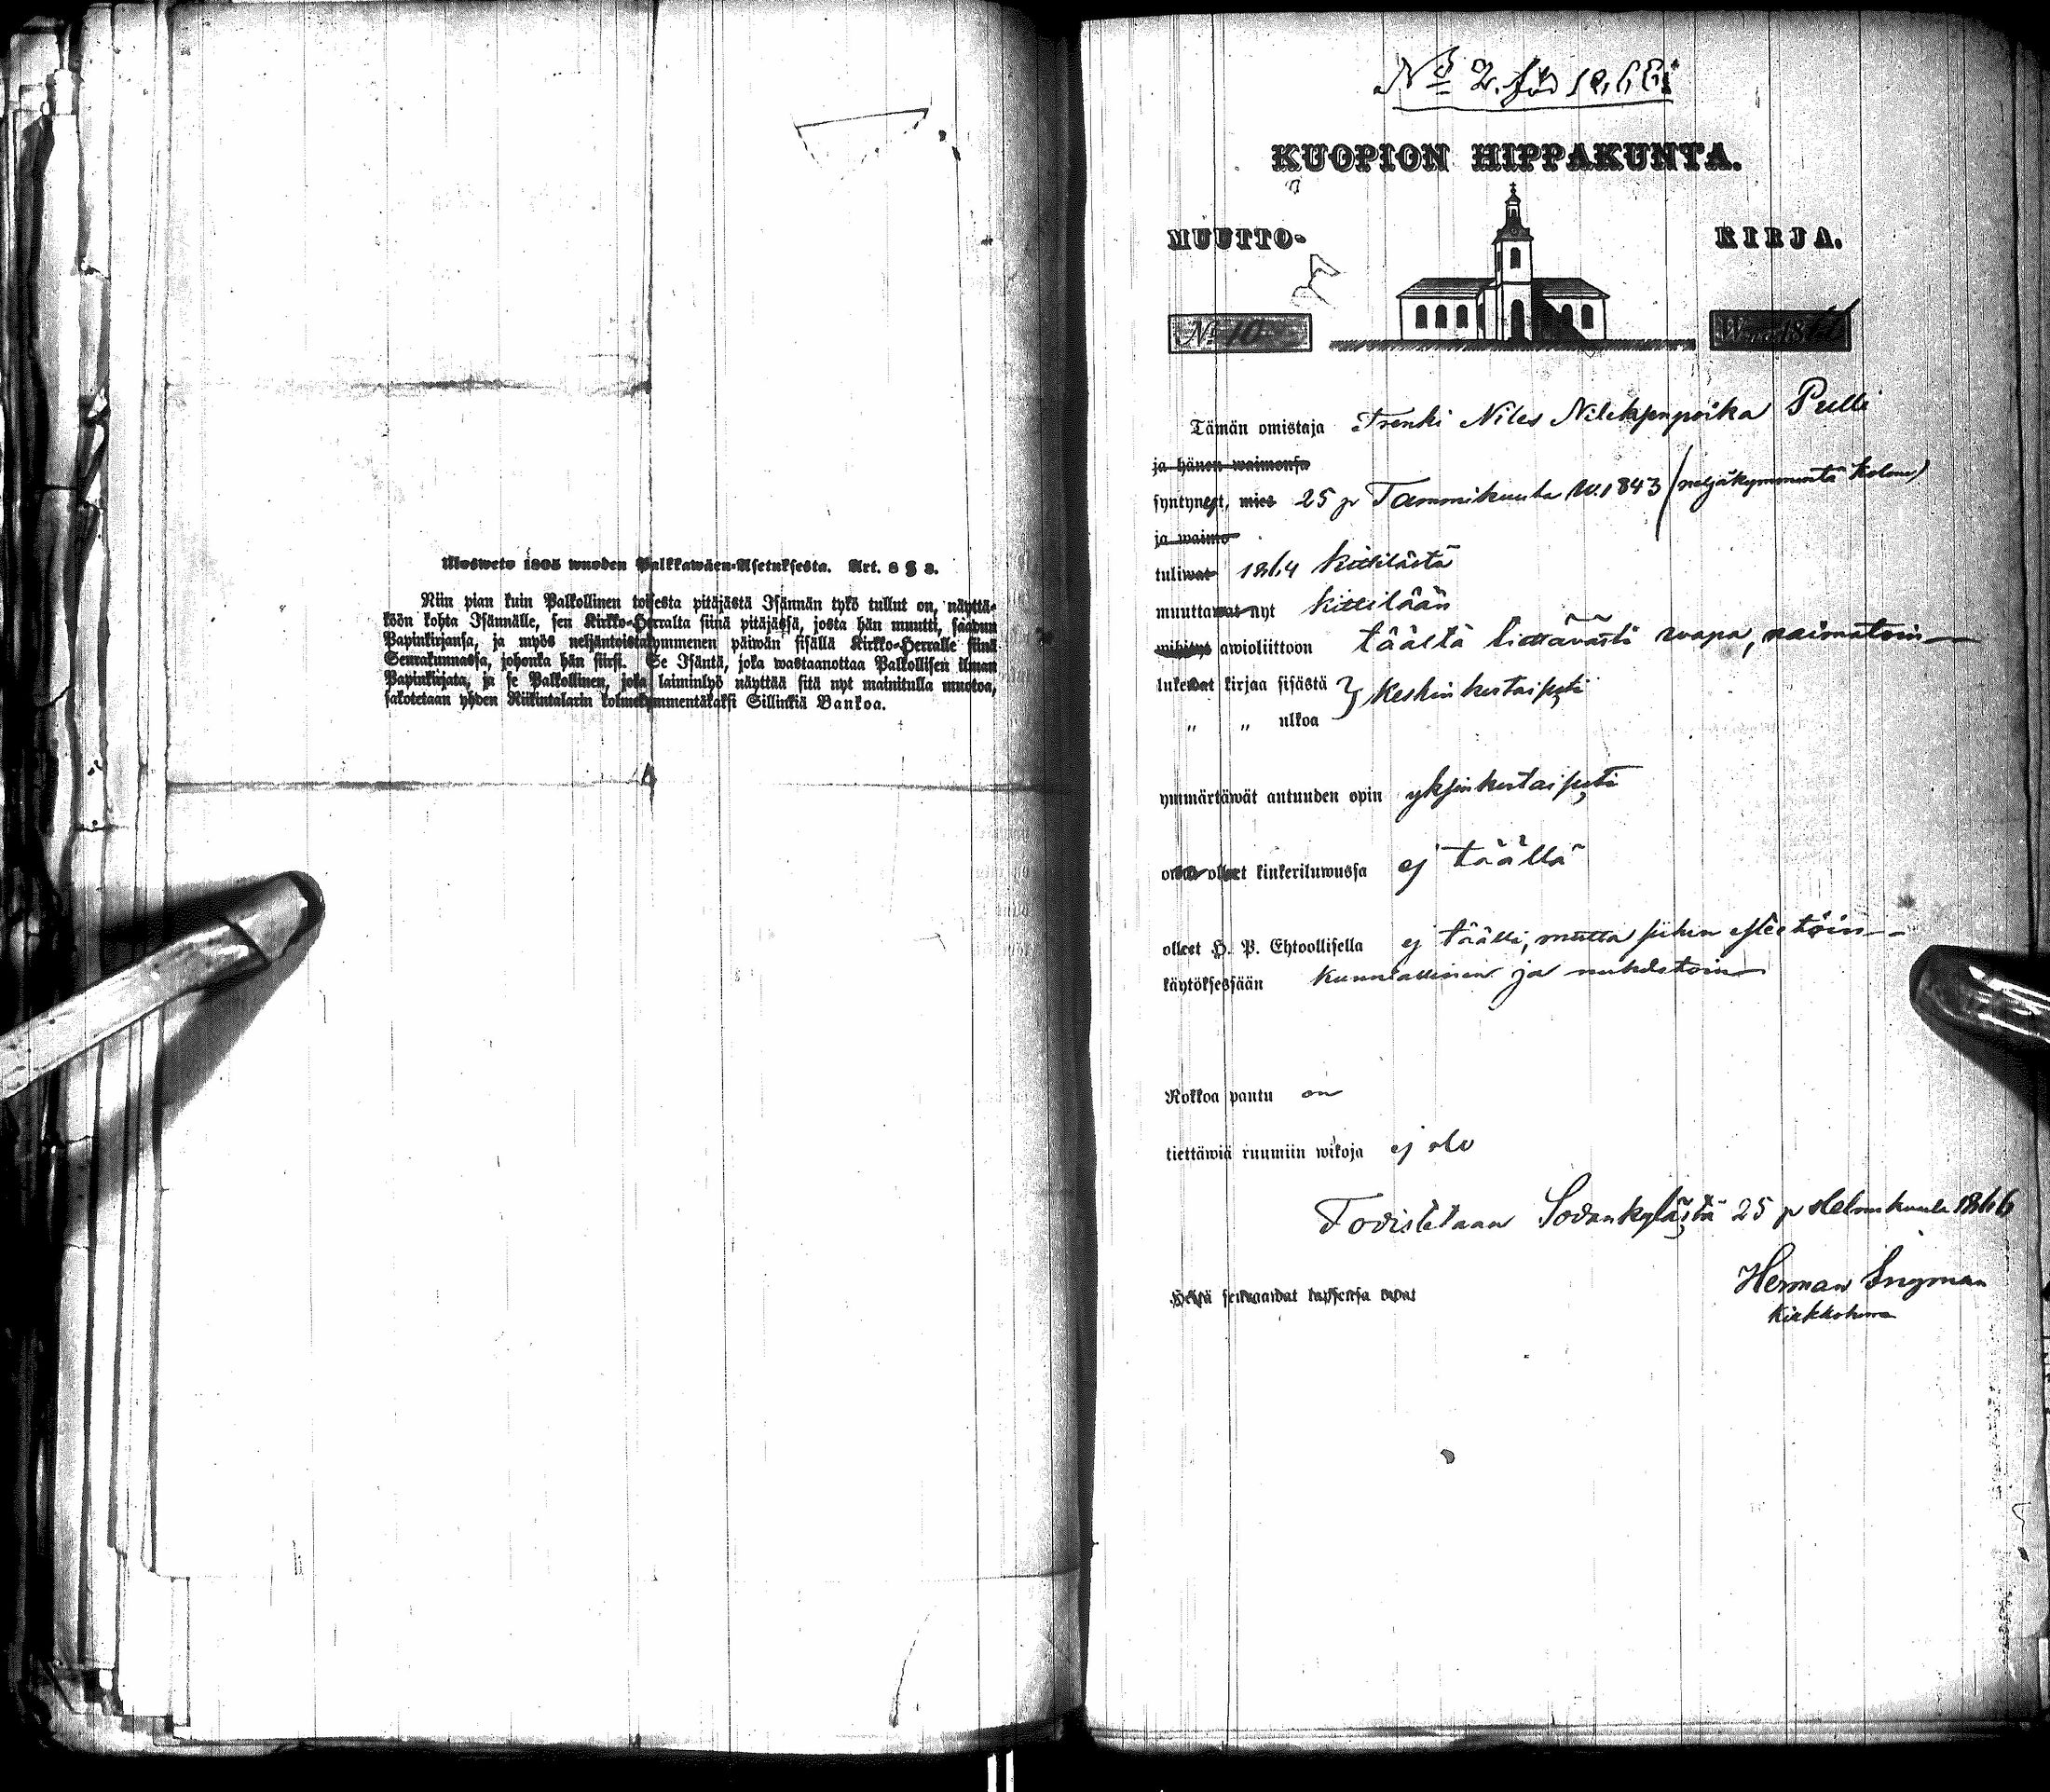 Ulosweto 1805 wuoden Palkkawäen-Asetuksesta. Art. 8 § 3.
Niin pian kuin Palkollinen toisesta pitäjästä Isännän tykö tullut on, näyttä-
köön kohta Isännälle, sen Kirkko-Herralta siinä pitäjässä, josta hän muutti, saadun
Papinkirjansa, ja myös neljäntoistakymmenen päiwän sisällä Kirkko-Herralle siinä
Seurakunnassa, johonka hän siirsi. Se Isäntä, joka wastaanottaa Palkollisen ilman
Papinkirjata, ja se Palkollinen, joka laiminlyö näyttää sitä nyt mainitulla muotoa,
sakotetaan yhden Riikintalarin kolmekymmentäkaksi Sillinkiä Bankoa.
No 2. för 1866.
KUOPION HIPPAKUNTA.
MUUTTO- KIRJA.
No 10 Wuonna 1866
Tämän omistaja Trenki Niles Nileksenpoika Pulli
ja hänen waimonsa
syntynyt, mies 25 p Tammikuuta w. 1843 (neljäkymmentä kolme)
ja waimo
tuliwat 1864 Kittilästä
muuttawat nyt Kittilään
awioliittoon täältä tiettävästi wapa, naimatoin
lukewat kirjaa sisästä } keskinkertaisesti
" " ulkoa
ymmärtäwät autuuden opin yksinkertaisesti
owat olleet kinkeriluwussa ej täällä
olleet H. P. Ehtoollisella ej täällä, mutta siihen esteetöin
käytöksessään kunniallinen ja nuhdetoin
Rokkoa pantu on
tiettäwiä ruumiin wikoja ej ole
Todistetaan Sodankylästä 25 p Helmikuuta 1866
Herman Ingman
Kirkkoherra
Heitä seuraawat lapsensa owat